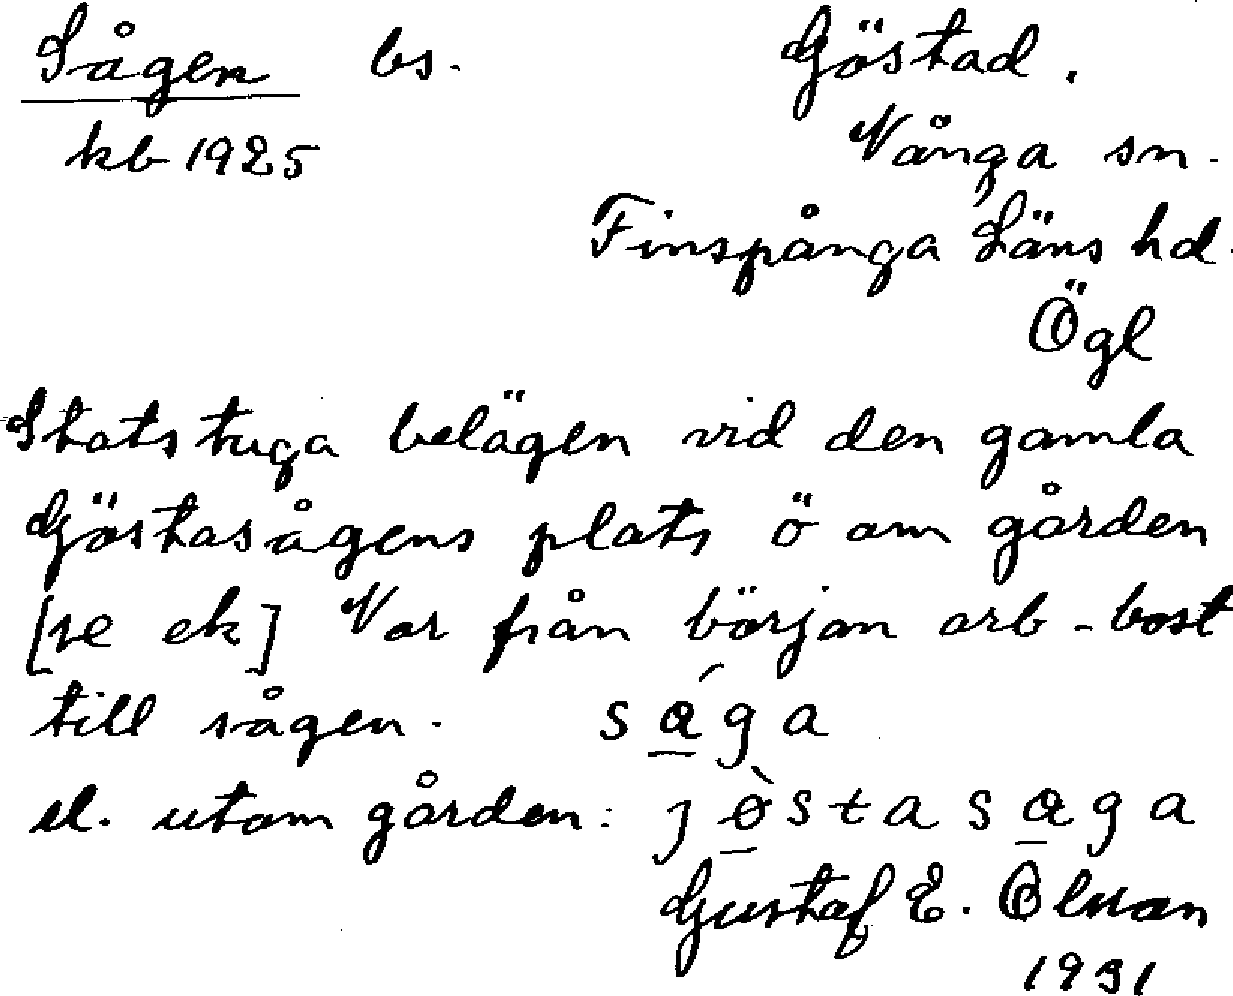 Sågen bs. Göstad.
kb 1925 Vånga sn.
Finspånga Läns hd.
Ögl
Statstuga belägen vid den gamla
Göstasågens plats ö om gården
[se ek] Var från början arb-bost
till sågen. såga
el. utom gården: jòstasåga
Gustaf E.
1931